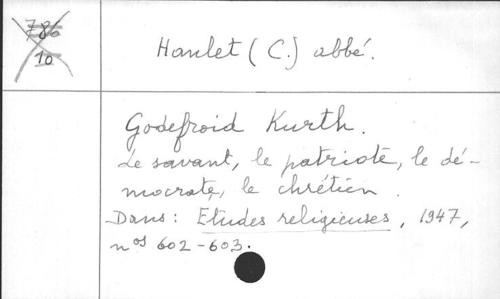 786
10
Hanlet (C.) abbé.
Godefroid Kurth.
Le savant, le patriote, le dé-
mocrate, le chrétien.
Dans: Etudes religieuses, 1947,
nos 602-603.